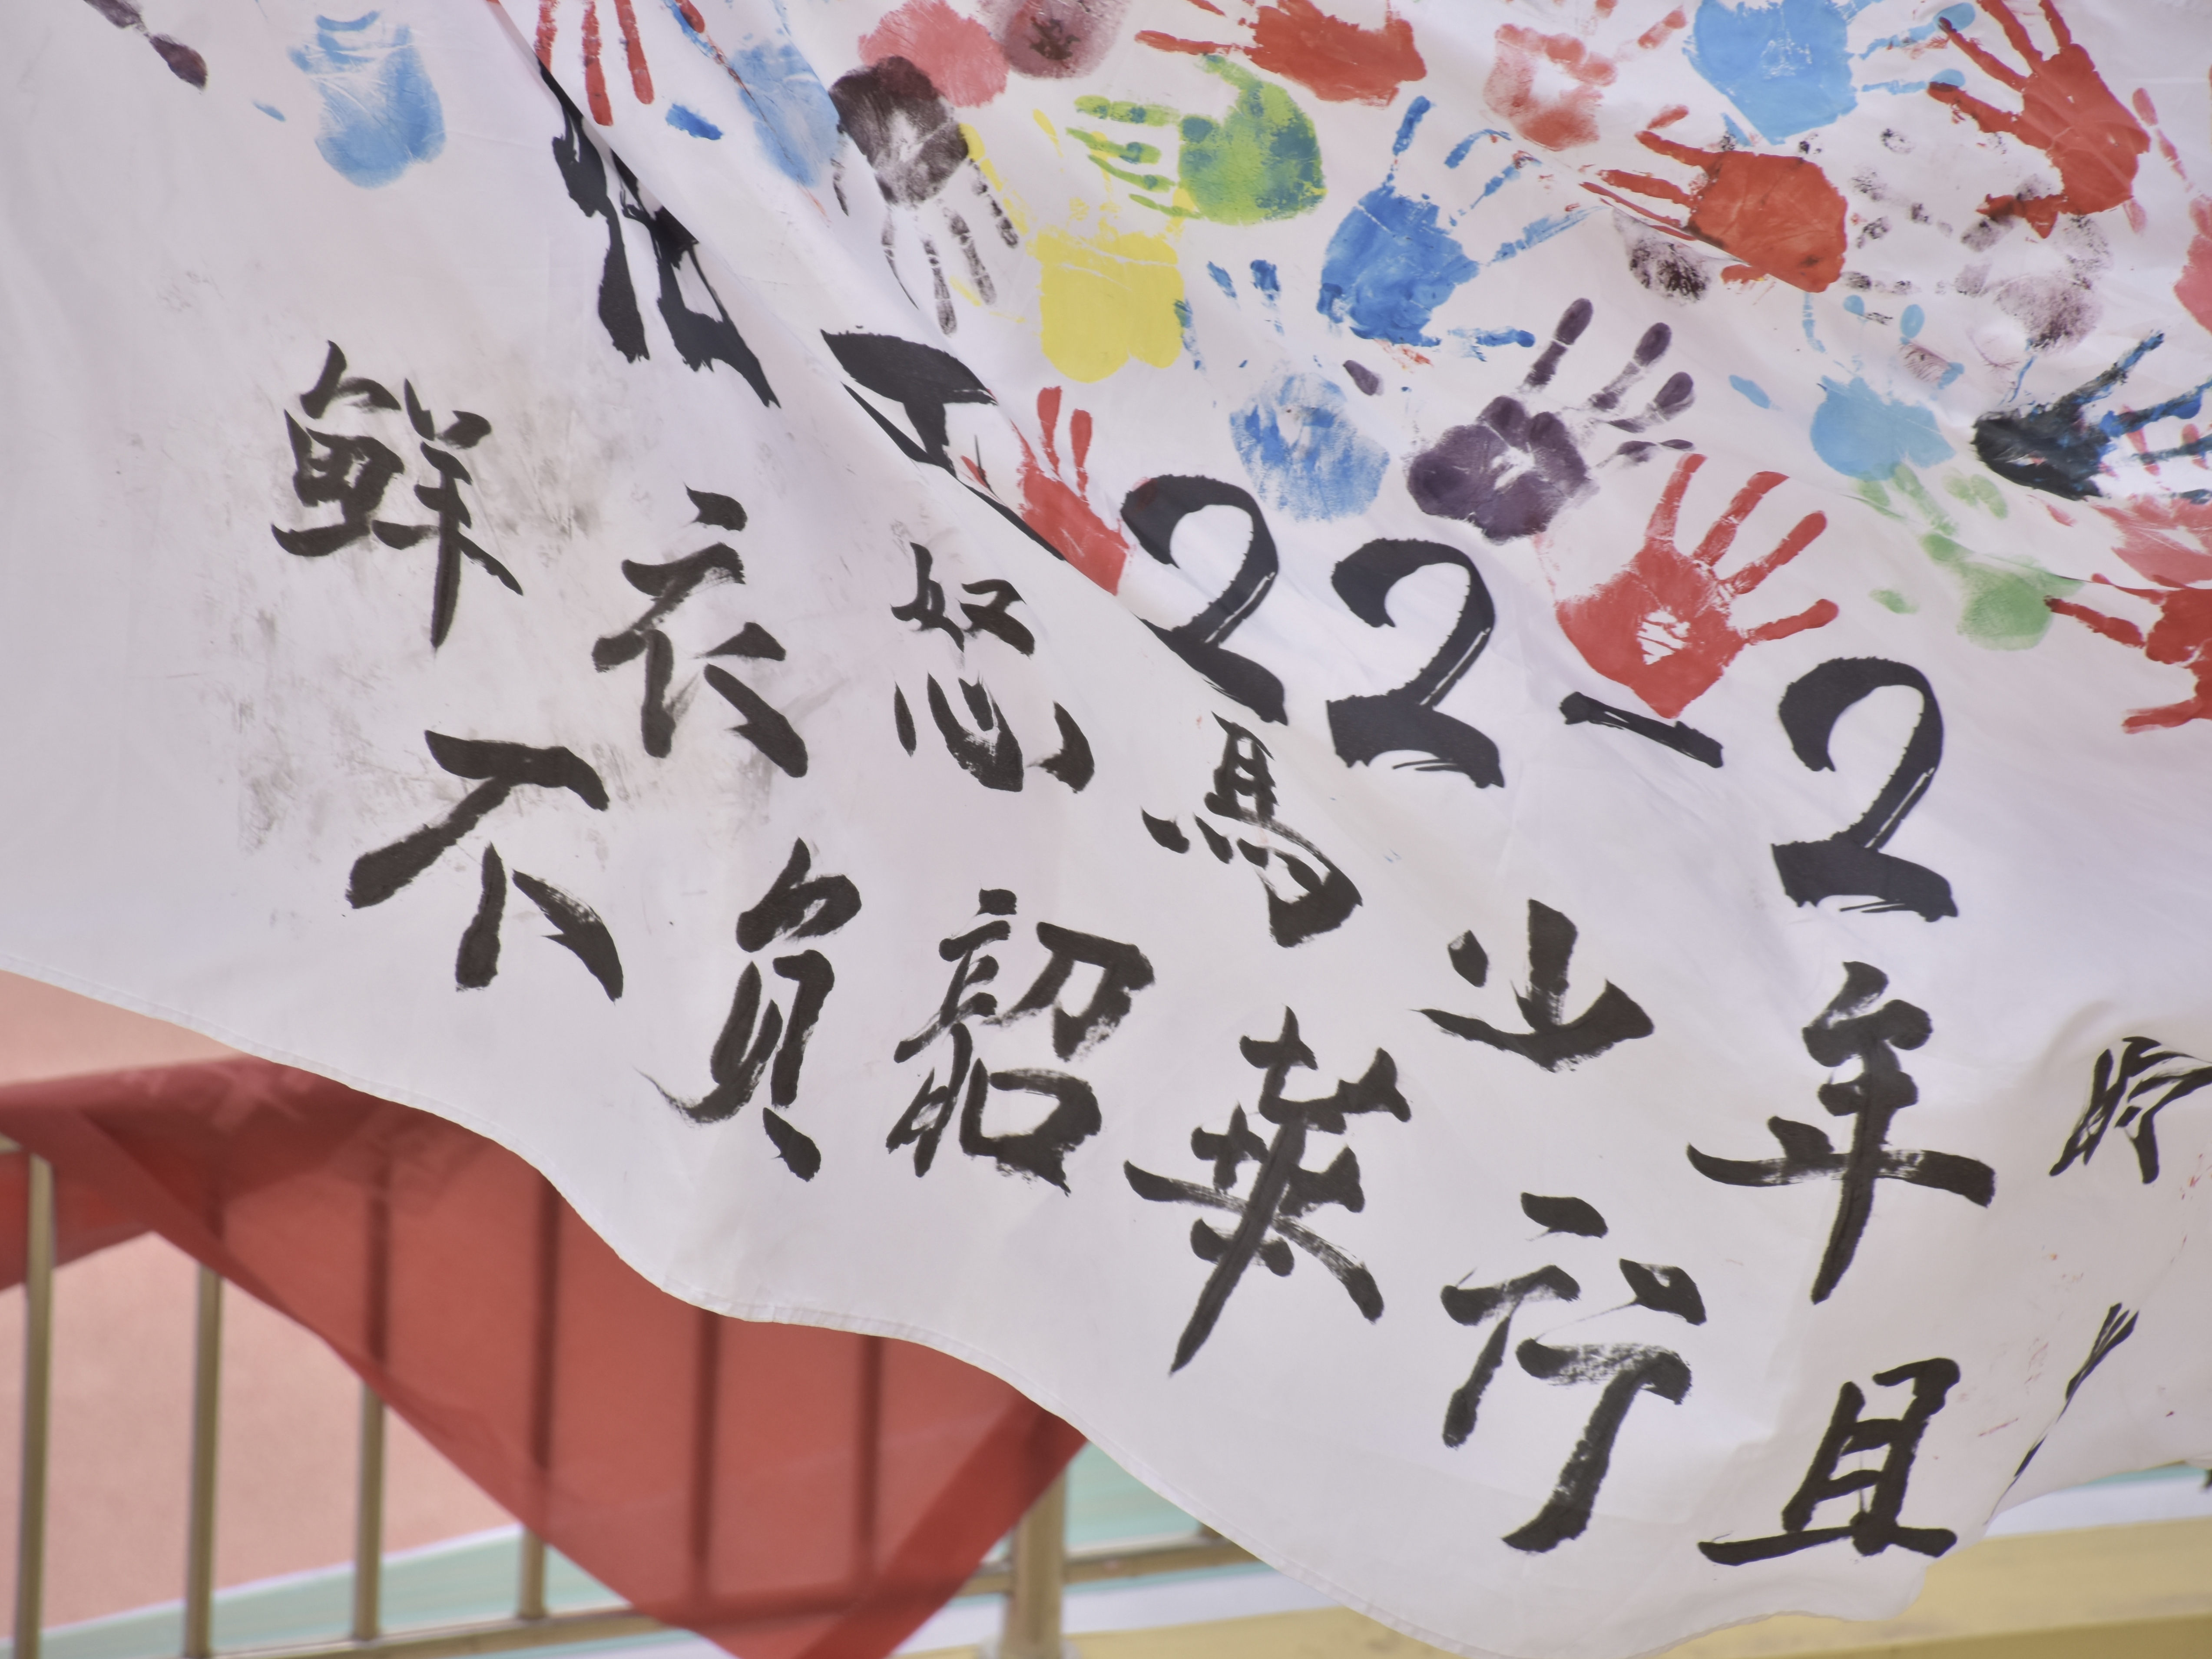 22-2
鲜衣怒馬少年
不负韶華行且